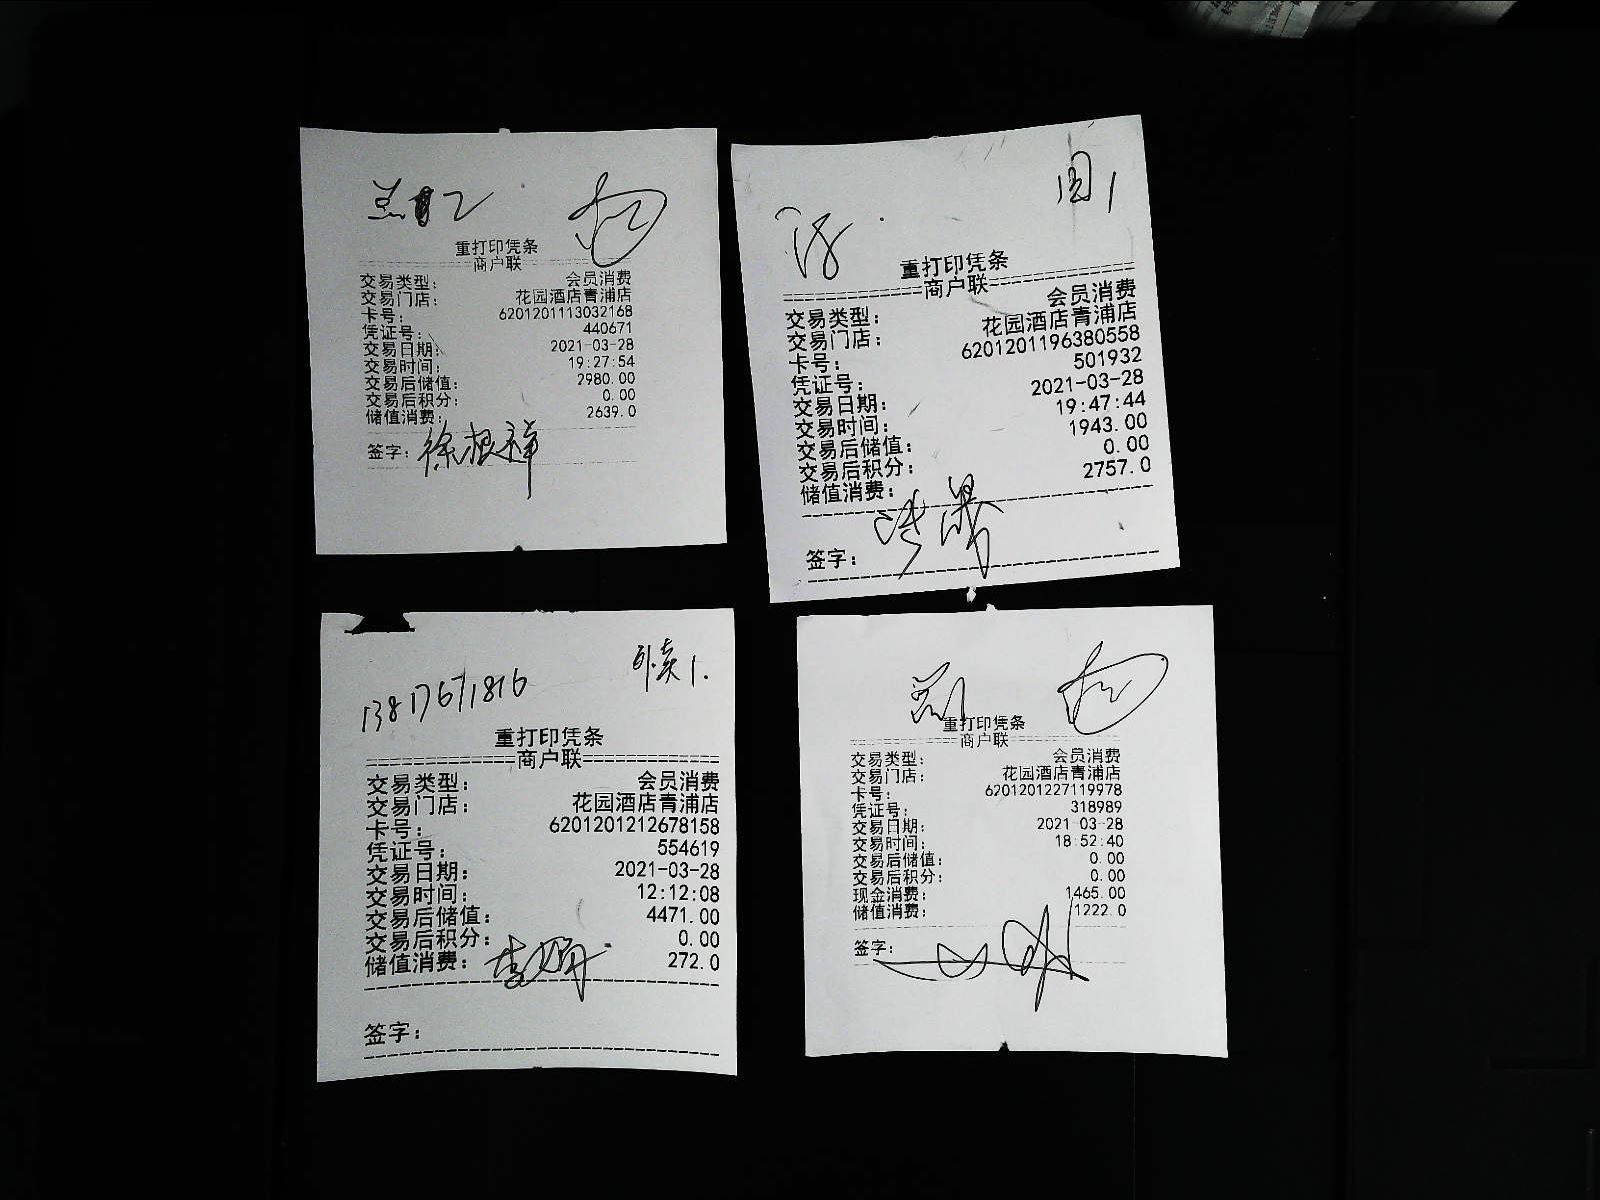 重打印凭条
商户联
交易类型： 会员消费
交易门店： 花园酒店青浦店
卡号： 6201201113032168
凭证号： 440671
交易日期： 2021-03-28
交易时间： 19:27:54
交易后储值： 2980.00
交易后积分： 0.00
储值消费： 2639.0
签字： 徐根祥
重打印凭条
商户联
交易类型： 会员消费
交易门店： 花园酒店青浦店
卡号： 6201201196380558
凭证号： 501932
交易日期： 2021-03-28
交易时间： 19:47:44
交易后储值： 1943.00
交易后积分： 0.00
储值消费： 2757.0
签字：
13817671816
重打印凭条
商户联
交易类型： 会员消费
交易门店： 花园酒店青浦店
卡号： 6201201212678158
凭证号： 554619
交易日期： 2021-03-28
交易时间： 12:12:08
交易后储值： 4471.00
交易后积分： 0.00
储值消费： 272.0
签字：
重打印凭条
商户联
交易类型： 会员消费
交易门店： 花园酒店青浦店
卡号： 6201201227119978
凭证号： 318989
交易日期： 2021-03-28
交易时间： 18:52:40
交易后储值： 0.00
交易后积分： 0.00
现金消费： 1465.00
储值消费： 1222.0
签字：